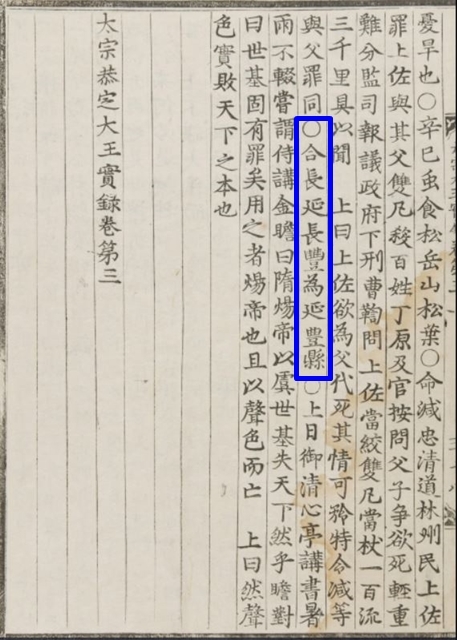 憂旱也○辛巳虫食松岳山松葉○命減忠清道林州民上佐
罪上佐與其父雙凡殺百姓丁原及官按問父子爭欲死輕重
難分監司報議政府下刑曹鞫問上佐當絞雙凡當杖一百流
三千里具以聞 上曰上佐欲為父代死其情可矜特令減等
與父罪同○合長延長豊為延豊縣○上日御清心亭講書暑
雨不輟嘗謂侍講金瞻曰隋煬帝以虞世基失天下然乎瞻對
曰世基固有罪矣用之者煬帝也且以聲色而亡 上曰然聲
色實敗天下之本也
太宗恭定大王實錄卷第三